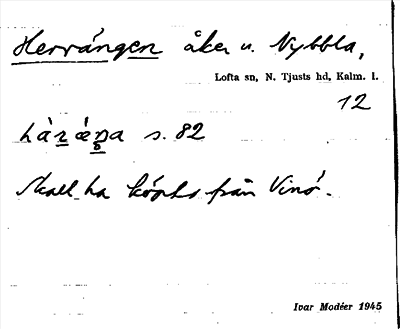 Herrängen åker u. Nybbla,
Lofta sn, N. Tjusts hd, Kalm. l.
12
s. 82
Skall ha köpts från Vinö.
Ivar Modéer 1945